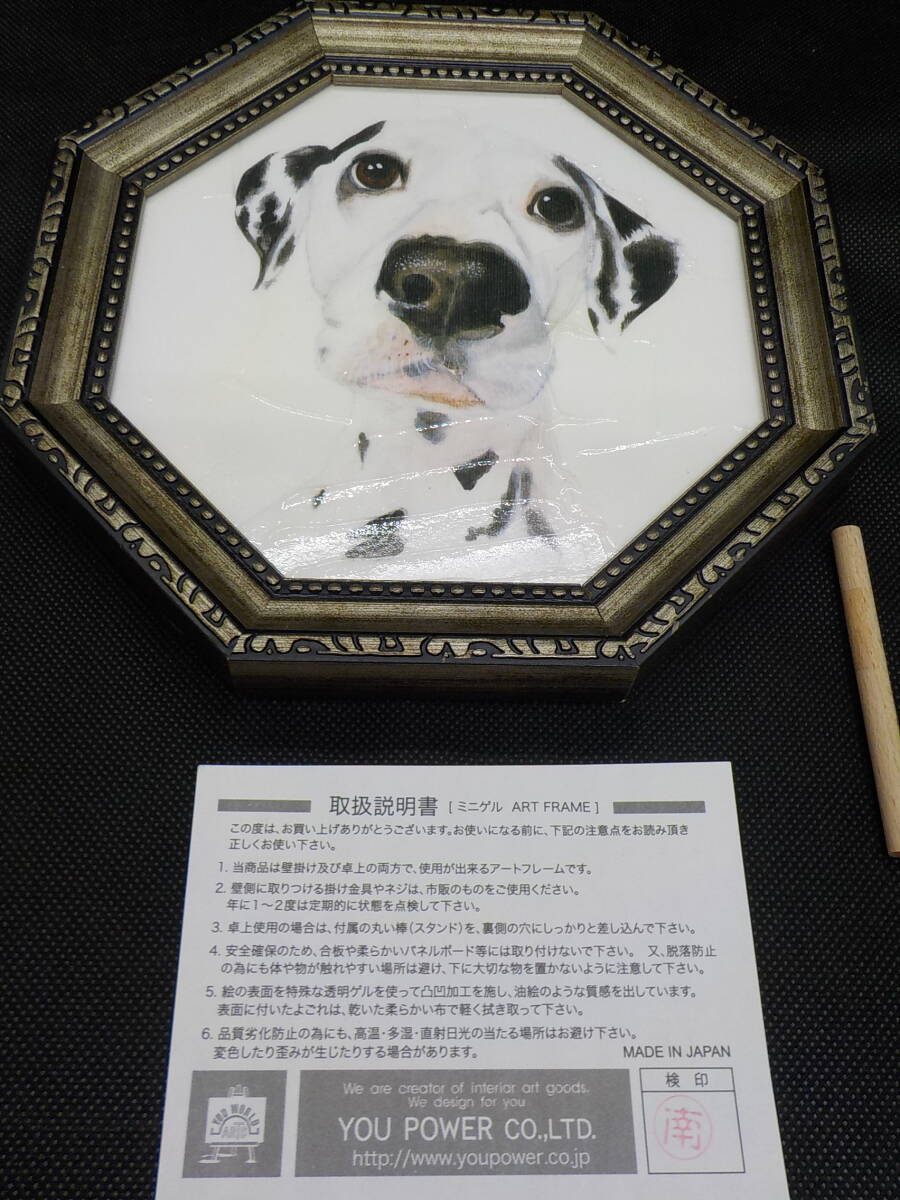 取扱説明書 [ ミニゲル ART FRAME ]
この度は、お買い上げありがとうございます。お使いになる前に、下記の注意点をお読み頂き
正しくお使い下さい。
1. 当商品は壁掛け及び卓上の両方で、使用が出来るアートフレームです。
2. 壁側に取りつける掛け金具やネジは、市販のものをご使用ください。
年に1〜2度は定期的に状態を点検して下さい。
3. 卓上使用の場合は、付属の丸い棒(スタンド)を、裏側の穴にしっかりと差し込んで下さい。
4. 安全確保のため、合板や柔らかいパネルボード等には取り付けないで下さい。 又、脱落防止
の為にも体や物が触れやすい場所は避け、下に大切な物を置かないように注意して下さい。
5. 絵の表面を特殊な透明ゲルを使って凸凹加工を施し、油絵のような質感を出しています。
表面に付いたよごれは、乾いた柔らかい布で軽く拭き取って下さい。
6. 品質劣化防止の為にも、高温・多湿・直射日光の当たる場所はお避け下さい。
変色したり歪みが生じたりする場合があります。
MADE IN JAPAN
YOU WORLD
ARTS
We are creator of interior art goods.
We design for you
YOU POWER CO.,LTD.
http://www.youpower.co.jp
検 印
南